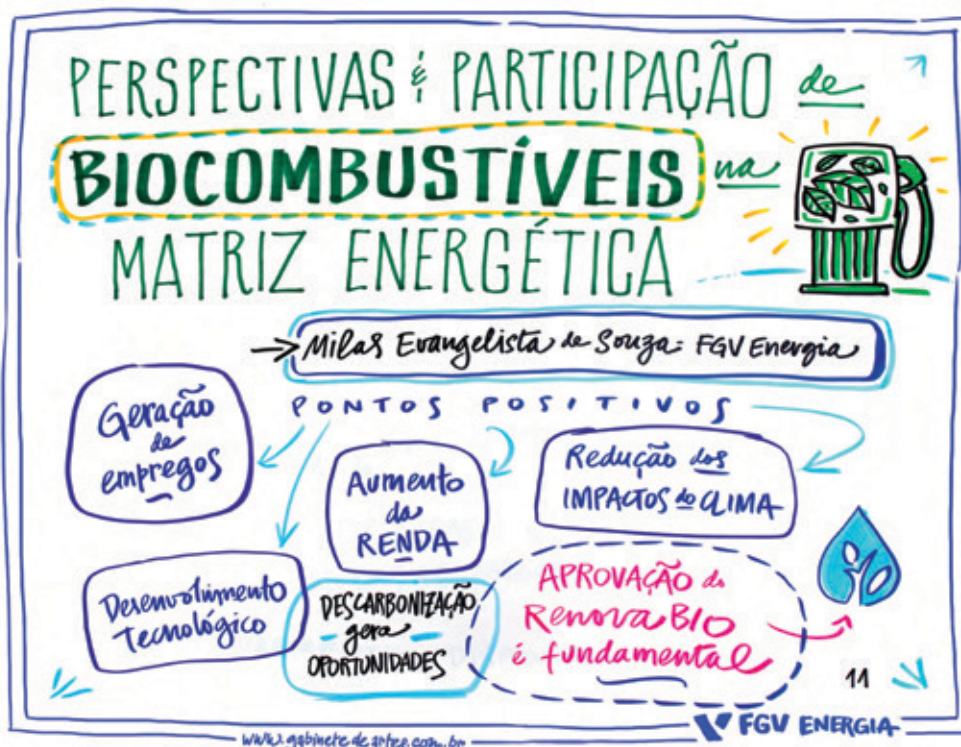 PERSPECTIVAS & PARTICIPAÇÃO de
BIOCOMBUSTÍVEIS na
MATRIZ ENERGÉTICA
Milas Evangelista de Souza: FGV Energia
PONTOS POSITIVOS
Geração
de
empregos
Aumento
da
RENDA
Redução dos
IMPACTOS do CLIMA
Desenvolvimento
Tecnológico
DESCARBONIZAÇÃO
gera
OPORTUNIDADES
APROVAÇÃO do
RenovaBIO
é fundamental
11
FGV ENERGIA
www.gabinetedeartes.com.br